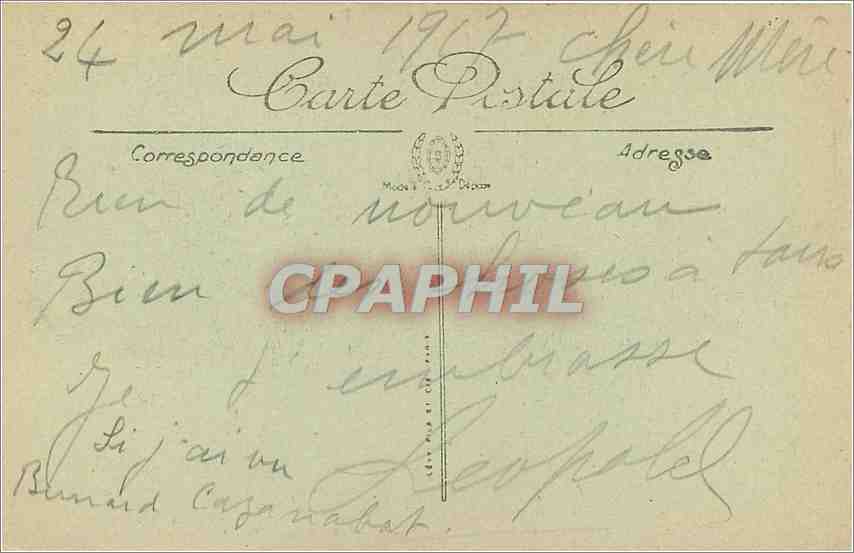 24 mai 1917 Chère Mère
Carte Postale
Correspondance
Adresse
Rien de nouveau
Bien des choses à tous
CPAPHIL
Je t'embrasse
LÉVY FILS ET CIE, PARIS
Si j'ai vu Leopold
Bernard Cazanabat.